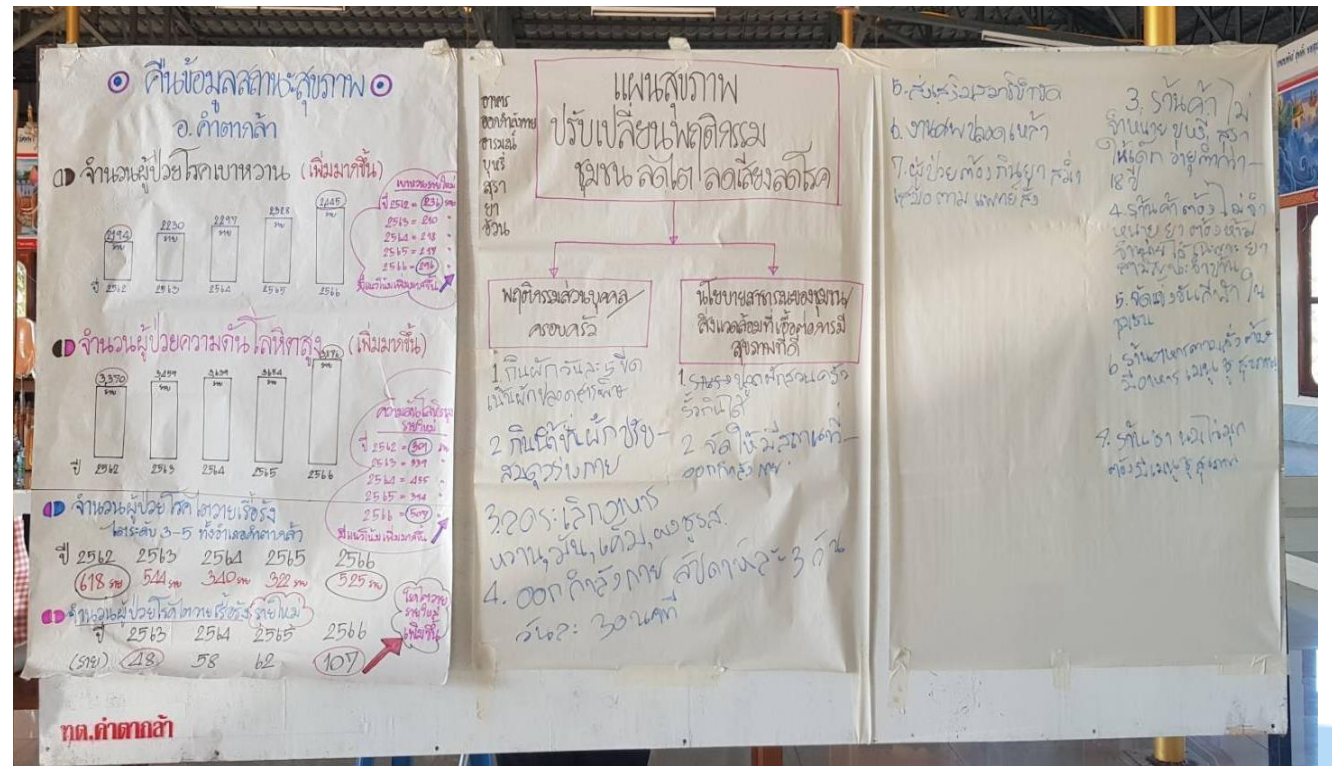 คืนข้อมูลสถานะสุขภาพ
อ.คำตากล้า
จำนวนผู้ป่วยโรคเบาหวาน (เพิ่มมากขึ้น)
2194 ราย
2230 ราย
2297 ราย
2328 ราย
2445 ราย
ปี 2562 2563 2564 2565 2566
เบาหวานรายใหม่
ปี 2562 = 236 ราย
2563 = 230 "
2564 = 218 "
2565 = 219 "
2566 = 296 "
มีแนวโน้มเพิ่มมากขึ้น
จำนวนผู้ป่วยความดันโลหิตสูง (เพิ่มมากขึ้น)
3,370 ราย
ปี 2562 2563 2564 2565 2566
ความดันโลหิตสูง
รายใหม่
ปี 2562 =
2563 = 339
2564 = 455
2565 = 394
2566 = 509
มีแนวโน้มเพิ่มมากขึ้น
จำนวนผู้ป่วยโรคไตวายเรื้อรัง
ไตระดับ 3-5 ทั้งอำเภอคำตากล้า
ปี 2562 2563 2564 2565 2566
618 ราย 544 ราย 340 ราย 322 ราย 525 ราย
จำนวนผู้ป่วยโรคไตวายเรื้อรังรายใหม่
ปี 2563 2564 2565 2566
(ราย) 48 58 62 107
โรคไตวาย
รายใหม่
เพิ่มขึ้น
ทต.คำตากล้า
อาหาร
ออกกำลังกาย
อารมณ์
บุหรี่
สุรา
ยา
อ้วน
แผนสุขภาพ
ปรับเปลี่ยนพฤติกรรม
ชุมชน ลดไต ลดเสี่ยงลดโรค
พฤติกรรมส่วนบุคคล/
ครอบครัว
1. กินผักวันละ 5 ขีด
เน้นผักปลอดสารพิษ
2 กินน้ำปั่นผักปรับ-
สมดุลร่างกาย
3. ลดละเลิกอาหาร
หวาน, มัน, เค็ม, ผงชูรส.
4. ออกกำลังกาย สัปดาห์ละ 3 วัน
วันละ 30 นาที
นโยบายสาธารณะของชุมชน/
สิ่งแวดล้อมที่เอื้อต่อการมี
สุขภาพที่ดี
1. รณรงค์ปลูกผักสวนครัว
รั้วกินได้
2 จัดให้มีสถานที่-
ออกกำลังกาย
5. ส่งเสริมสมาธิบำบัด
6. งานศพปลอดเหล้า
7. ผู้ป่วยต้องกินยาสม่ำ
เสมอตามแพทย์สั่ง
3. ร้านค้าไม่
จำหน่าย บุหรี่ สุรา
ให้เด็ก อายุต่ำกว่า-
18 ปี
4. ร้านค้าต้องไม่จำ
หน่าย ยา ต้องห้าม
จำหน่ายได้เฉพาะยา
สามัญประจำบ้าน
5. จัดแข่งขันกีฬาใน
ชุมชน
6 ร้านอาหารตามสั่งต้อง
มีอาหารเมนูชูสุขภาพ
ต้องมีเมนูชูสุขภาพ